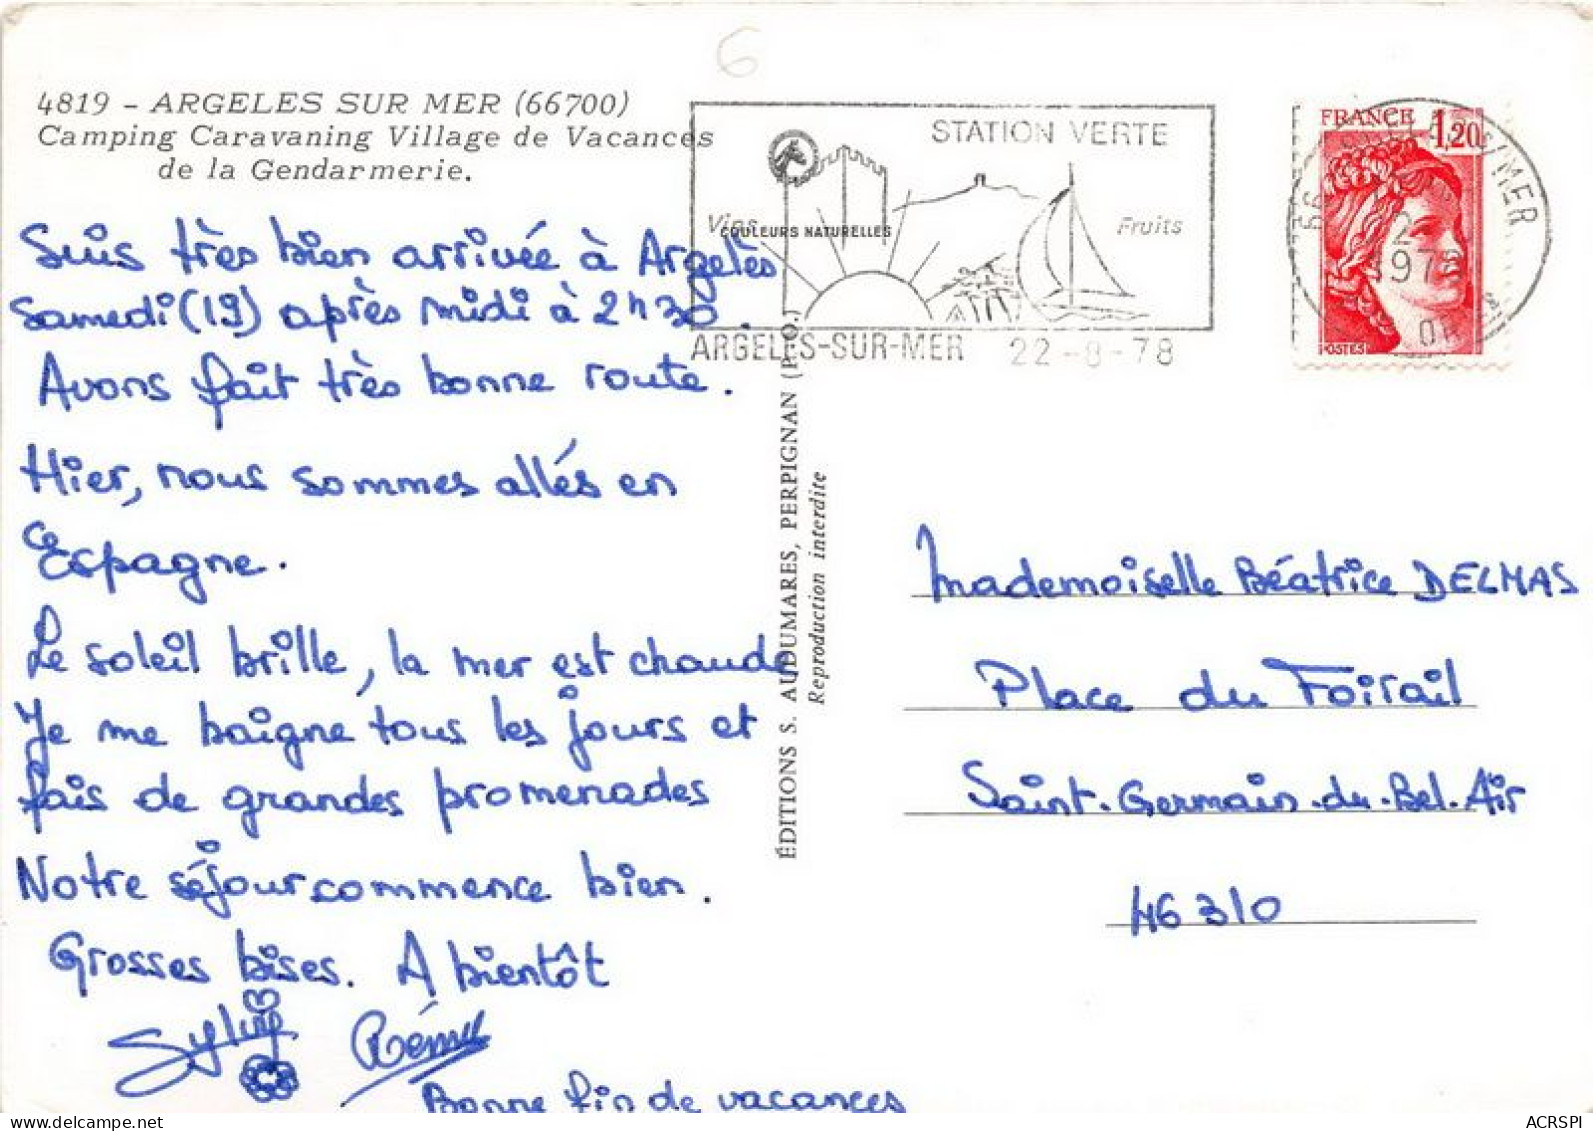 6
4819 - ARGELES SUR MER (66700)
Camping Caravaning Village de Vacances
de la Gendarmerie.
Suis très bien arrivée à Argelès
Samedi (19) après midi à 2h30.
Avons fait très bonne route.
Hier, nous sommes allés en
Espagne.
Le soleil brille, la mer est chaude
Je me baigne tous les jours et
fais de grandes promenades
Notre séjour commence bien.
Grosses bises. A bientôt
Sylvie Rémy
Bonne fin de vacances
ÉDITIONS S. AUDUMARES, PERPIGNAN (P.-O.)
Reproduction interdite
STATION VERTE
Vins
COULEURS NATURELLES
Fruits
ARGELES-SUR-MER 22-8-78
FRANCE 1,20
POSTES
66 S/MER
Mademoiselle Béatrice DELMAS
Place du Foirail
Saint-Germain-du-Bel-Air
46310
http://www.delcampe.net
ACRSPI